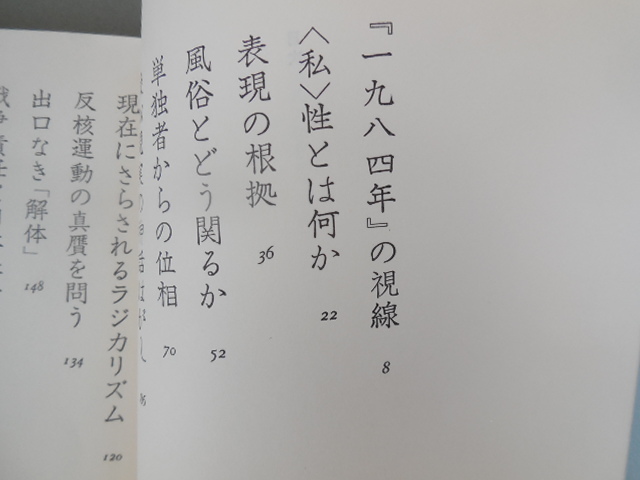 『一九八四年』の視線
8
〈私〉性とは何か
22
表現の根拠
36
風俗とどう関るか
52
単独者からの位相
70
現在にさらされるラジカリズム
120
反核運動の真贋を問う
134
出口なき「解体」
148